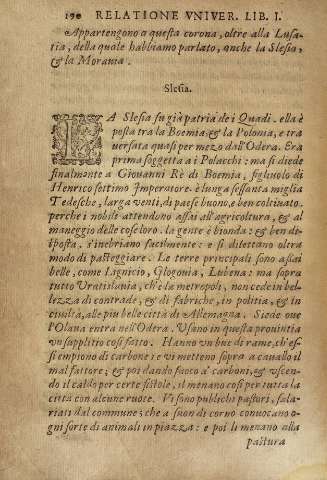 190 RELATIONE VNIVER. LIB. I.
Appartengono a questa corona, oltre alla Lusa-
tia, della quale habbiamo parlato, anche la Slesia,
& la Morauia.
Slesia.
LA Slesia fu già patria dei Quadi. ella è
posta tra la Boemia, & la Polonia, e tra
uersata quasi per mezo dall'Odera. Era
prima soggetta ai Polacchi: ma si diede
finalmente a Giouanni Rè di Boemia, figliuolo di
Henrico settimo Imperatore. è lunga sessanta miglia
Tedesche, larga venti, di paese buono, e ben coltiuato.
perche i nobili attendono assai all'agricoltura, & al
maneggio delle cose loro. la gente è bionda: & ben di-
sposta. s'inebriano facilmente: e si dilettano oltra
modo di pasteggiare. Le terre principali sono assai
belle, come Lignicio, Glogonia, Lubena: ma sopra
tutto Vratislauia, ch'è da metropoli, non cede in bel-
lezza di contrade, & di fabriche, in politia, & in
ciuiltà, alle piu belle città di Allemagna. Siede oue
l'Olaua entra nell'Odera. Vsano in questa prouintia
vn supplitio cosi fatto. Hanno vn bue di rame, ch'es-
si empiono di carbone: e ui mettono sopra a cauallo il
mal fattore; & poi dando fuoco a' carboni, & vscen-
do il caldo per certe fistole, il menano cosi per tutta la
città con alcune ruote. Vi sono publichi pastori, sala-
riati dal commune; che a suon di corno conuocano o-
gni sorte di animali in piazza: e poi li menano alla
pastura